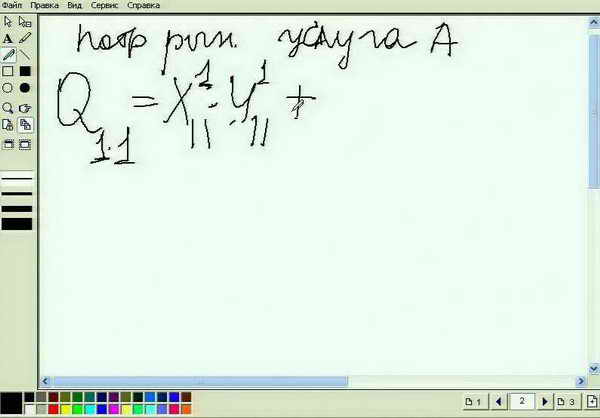 Файл Правка Вид Сервис Справка
потр рын. услуга А
Q₁.₁ = X¹₁₁ · У¹₁₁ +
1 2 3